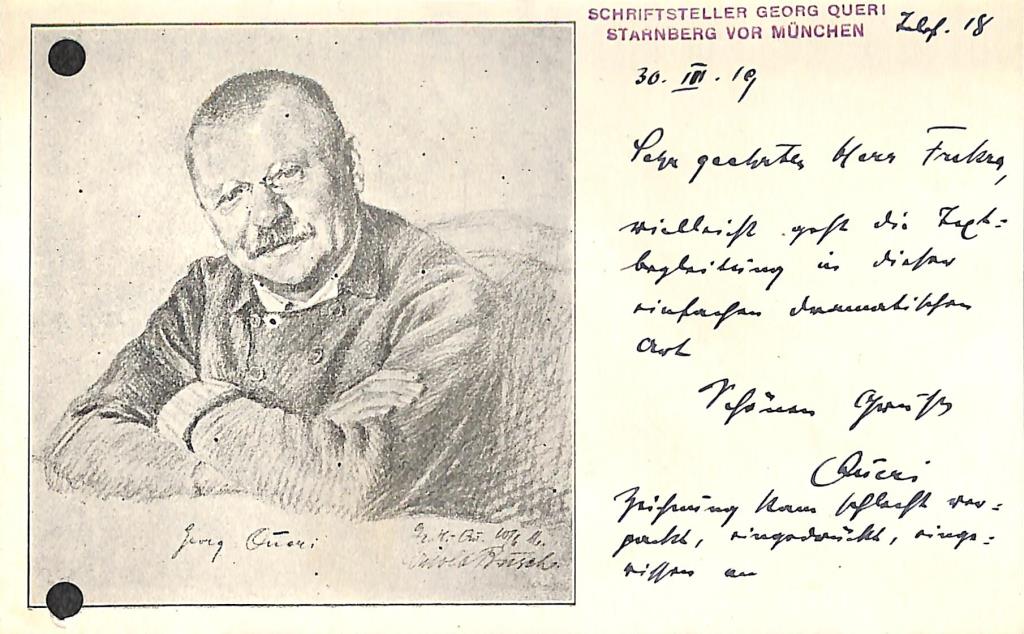 SCHRIFTSTELLER GEORG QUERI
STARNBERG VOR MÜNCHEN
Telef. 18
30. III. 19
Sehr geehrter Herr
vielleicht geht die Text-
begleitung in dieser
einfachen dramatischen
Art
Schönen Gruß
Queri
Zeichnung kam schlecht ver-
packt, eingedrückt, einge-
rissen an
Georg Queri